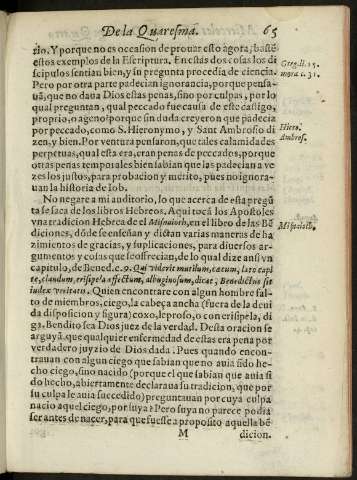 De la Quaresma. 65
zio. Y porque no es occasion de prouar esto agora, baste
estos exemplos de la Escriptura. En estas dos cosas los di
scipulos sentian bien, y su pregunta procedia de ciencia.
Pero por otra parte padecian ignorancia, porque pensa-
uã, que no daua Dios estas penas, sino por culpas, por lo
qual preguntan, qual peccado fue causa de este castigo,
proprio, o ageno? porque sin duda creyeron que padecia
por peccado, como S. Hieronymo, y Sant Ambrosio di
zen, y bien. Por ventura pensaron, que tales calamidades
perpetuas, qual esta era, eran penas de peccados, porque
otras penas temporales bien sabian que las padecian a ve
zes los justos, para probacion y merito, pues no ignora-
uan la historia de Iob.
No negare a mi auditorio, lo que acerca de esta pregũ
ta se saca de los libros Hebreos. Aqui tocã los Apostoles
vna tradicion Hebrea del Misnaioth, en el libro de las Bẽ
diciones, dõde se enseñan y dictan varias maneras de ha
zimientos de gracias, y suplicaciones, para diuersos ar-
gumentos y cosas que se offrescian, de lo qual dize ansi vn
capitulo, de Bened. c. 9. Qui viderit mutilum, cæcum, læso capi
te, claudum, erisipela affectum, albuginosum, dicat, Benedictus sit
iudex veritatis. Quien encontrare con algun hombre fal-
to de miembros, ciego, la cabeça ancha (fuera de la deui
da disposicion y figura) coxo, leproso, o con erisipela, di
ga, Bendito sea Dios juez de la verdad. Desta oracion se
arguyã, que qualquier enfermedad de estas era pena por
verdadero juyzio de Dios dada. Pues quando encon-
trauan con algun ciego que sabian que no auia sido he-
cho ciego, sino nacido (porque el que sabian que auia si
do hecho, abiertamente declaraua su tradicion, que por
su culpa le auia succedido) preguntauan por cuya culpa
nacio aquel ciego, por suya? Pero suya no parece podia
ser antes de nacer, para que fuesse a proposito aquella bẽ
M dicion.
Greg. li. 15.
mora. c. 31.
Hiero.
Ambros.
Misnaioth.